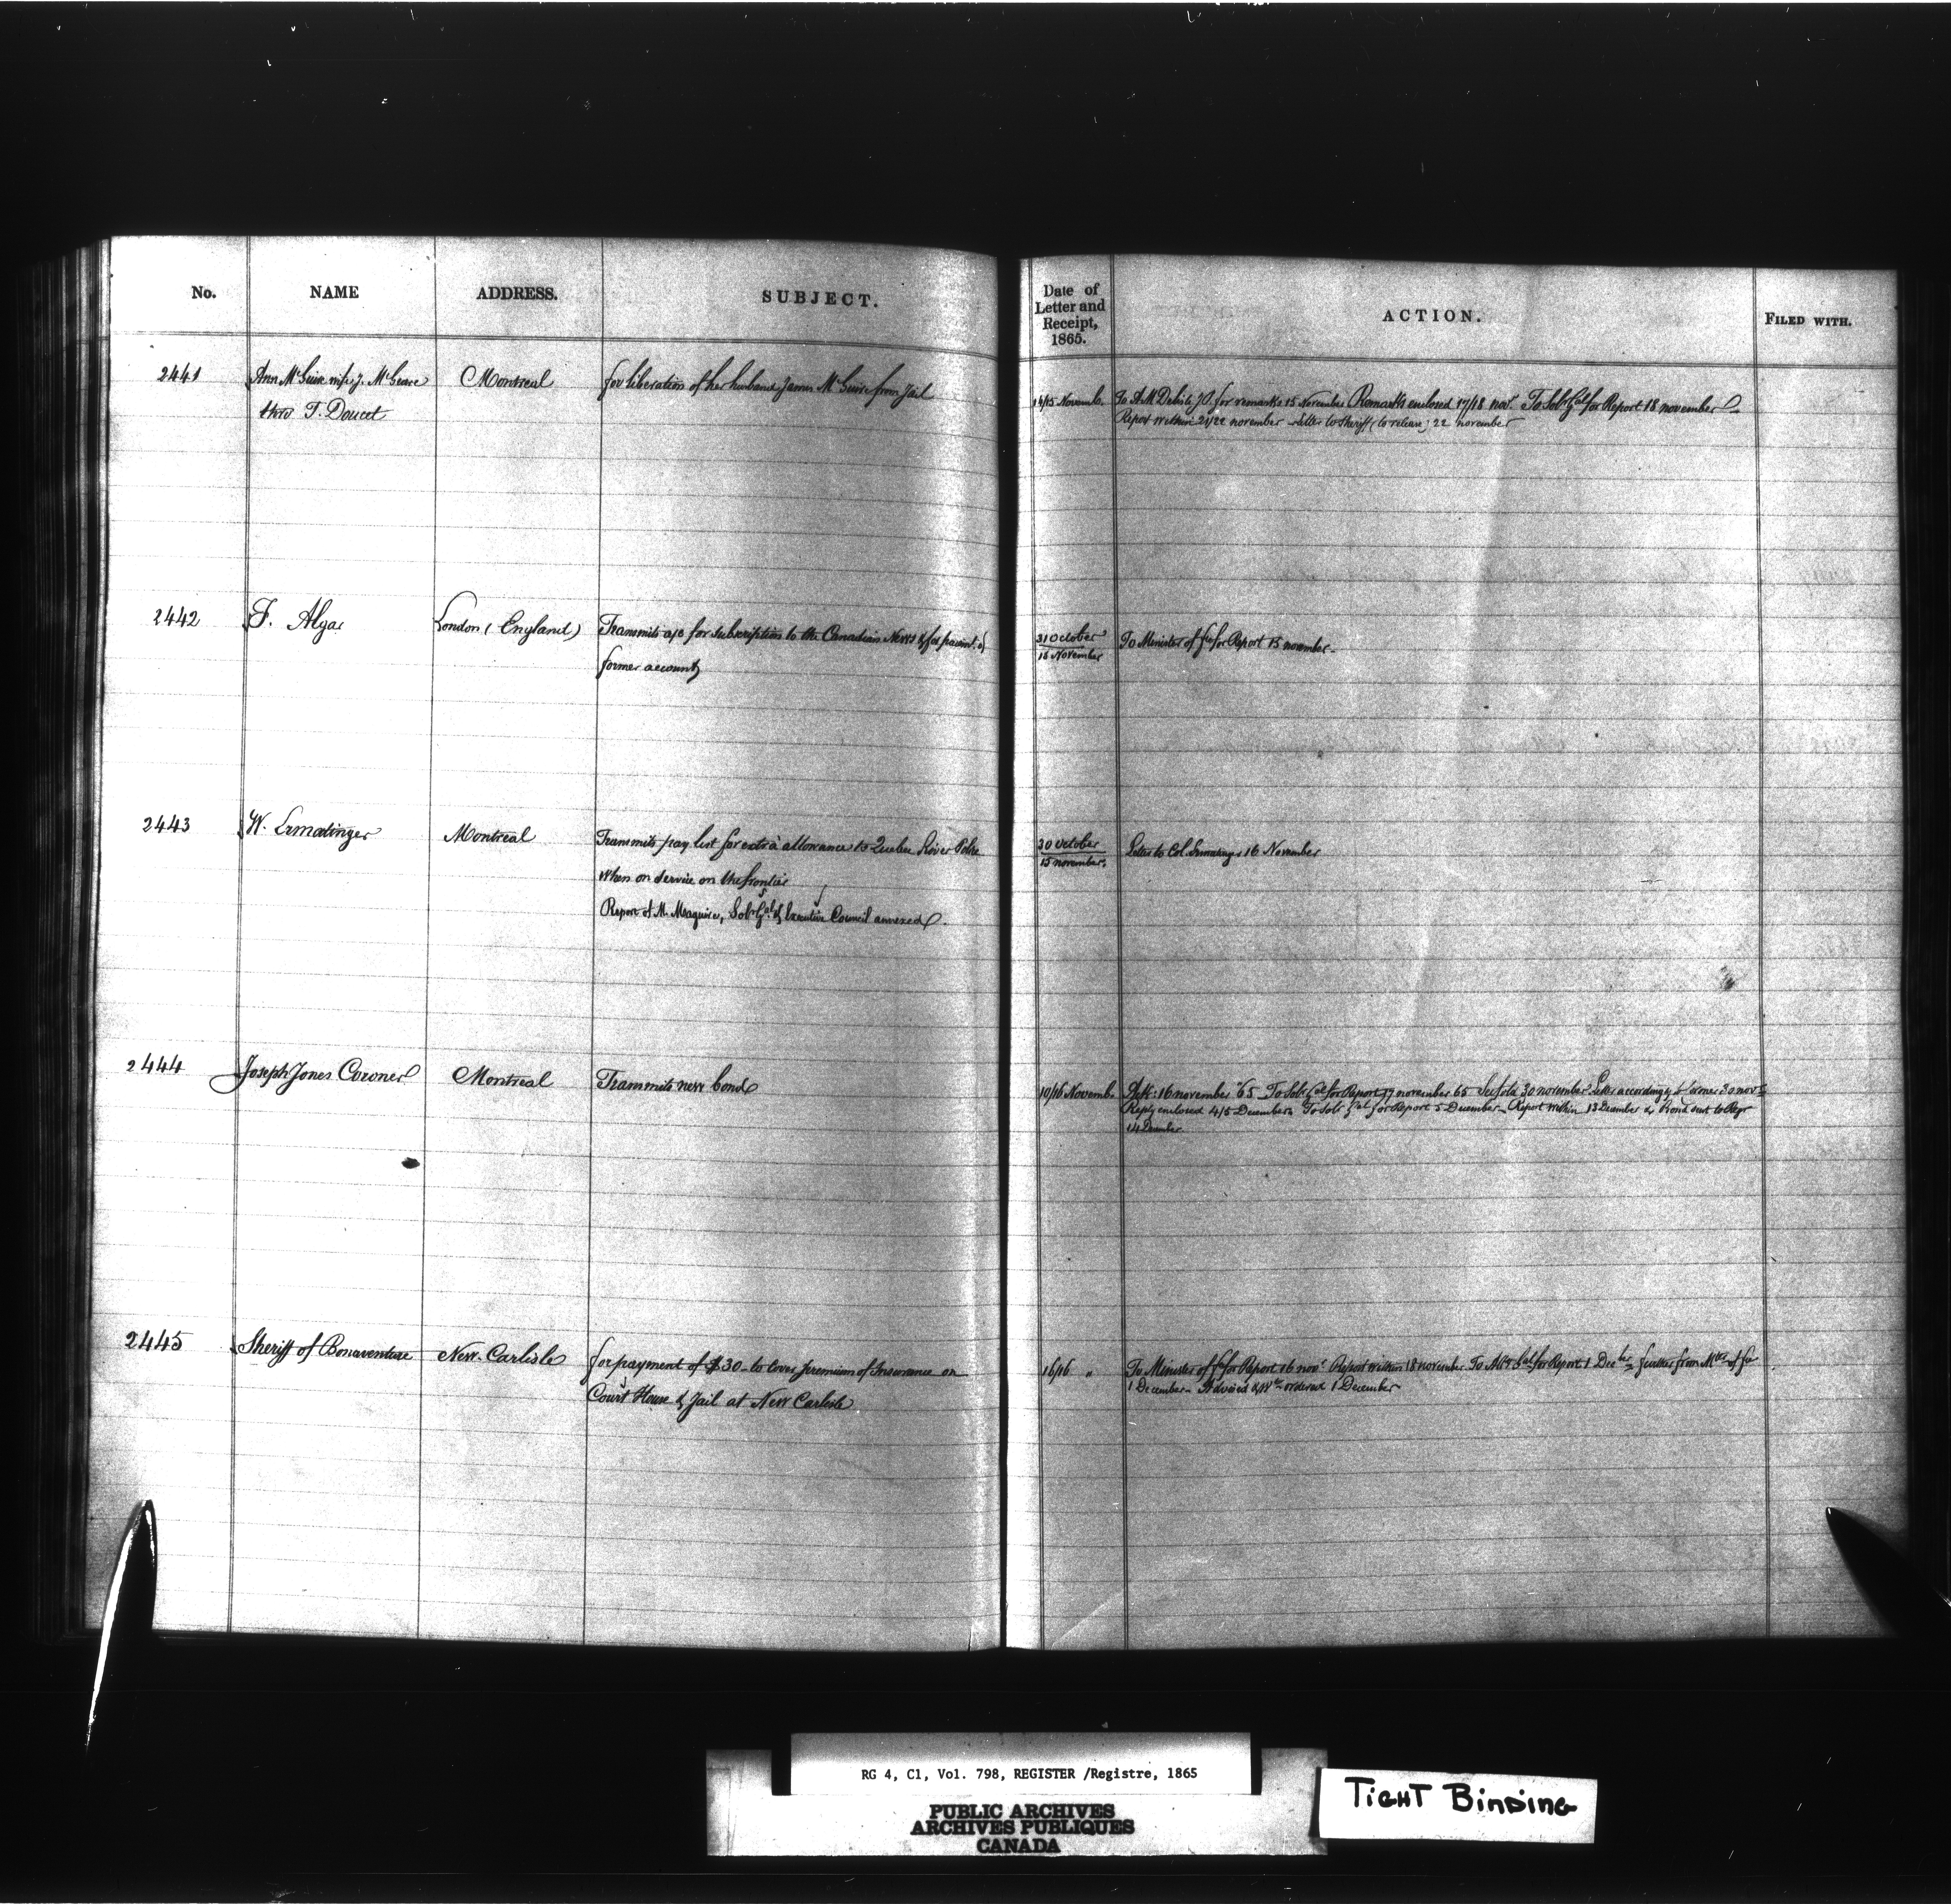 No. NAME ADDRESS. SUBJECT. Date of Letter and Receipt, 1865. ACTION. FILED WITH.
2441 Ann McGuire wife J. McGuire Montreal for liberation of her husband James McGuire from Jail
thro T. Doucet
14/15 Novemb. To A. M. Delisle J.P. for remarks 15 November Remarks enclosed 17/18 novr. To Solr Gal for Report 18 november
Report within 21/22 november Letter to Sheriff (to release) 22 november
2442 F. Algar London (England) Transmits a/c for subscription to the Canadian News & for paiemt. of
former account
31 October
15 November
To Minister of for Report 15 november
2443 W. Ermatinger Montreal Transmits pay list for extra allowance to Quebec River Police
when on service on the frontier
Report of M. Maguire, Solr Gal & Executive Council annexed.
30 October
15 november.
Letter to Col. 16 November
2444 Joseph Jones Coroner Montreal Transmits new bond
10/16 Novemb. 16 november 65 To Solr Gal for Report 17 november 65 30 november Letter accordingly to 30 novr
Reply enclosed 4/5 December To Solr Gal for Report 5 December Report within 13 December & Bond sent to Regr
14 December
2445 Sheriff of Bonaventure New Carlisle for payment of $30 to cover premium of Insurance on
Court House & Jail at New Carlisle
16/16 " To Minister of for Report 16 novr Report within 18 november To Atty Gal for Report 1 Decbr further from of
1 December Advised & ordered 1 December
RG 4, C1, Vol. 798, REGISTER /Registre, 1865
PUBLIC ARCHIVES
ARCHIVES PUBLIQUES
CANADA
TIGHT BINDING